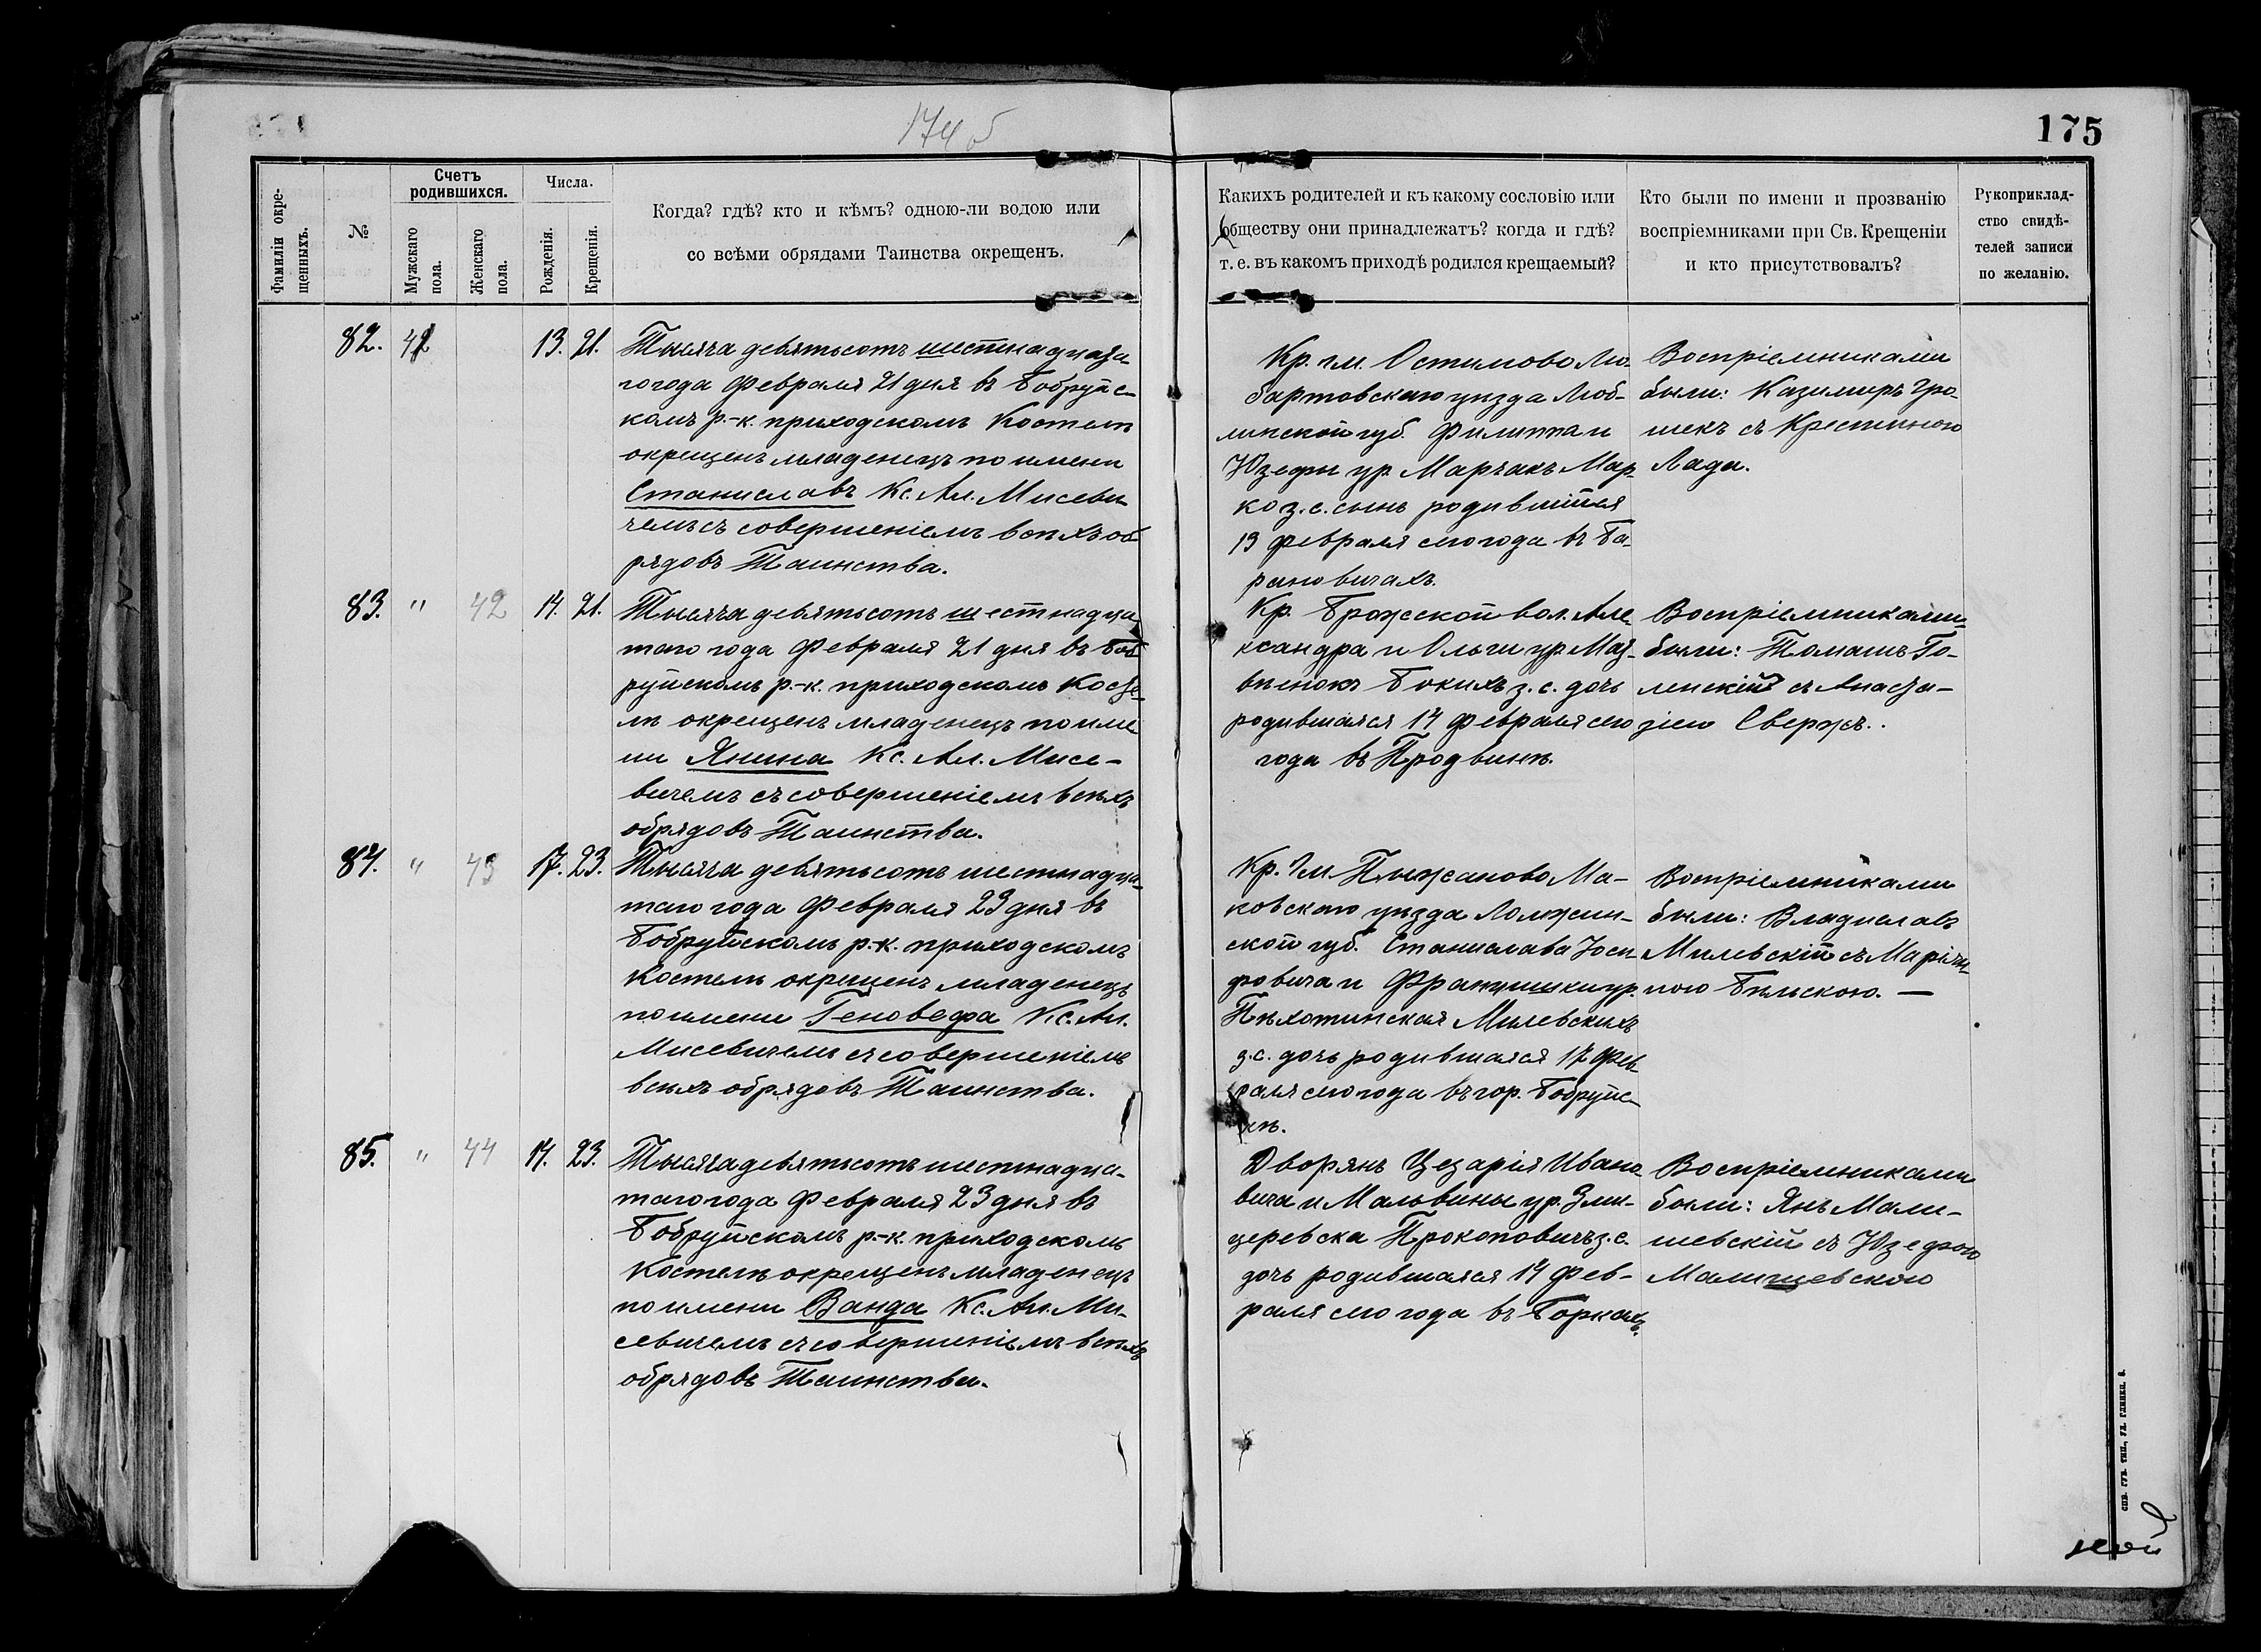 174 б
175
Фамиліи окре-
щенныхъ.
№
Счетъ
родившихся.
Мужскаго
пола.
Женскаго
пола.
Числа.
Рожденія.
Крещенія.
Когда? гдѣ? кто и кѣмъ? одною-ли водою или
со всѣми обрядами Таинства окрещенъ.
Какихъ родителей и къ какому сословію или
обществу они принадлежатъ? когда и гдѣ?
т. е. въ какомъ приходѣ родился крещаемый?
Кто были по имени и прозванію
воспріемниками при Св. Крещеніи
и кто присутствовалъ?
Рукоприклад-
ство свидѣ-
телей записи
по желанію.
82. 13. 21.
Тысяча девятьсотъ шестнадцата-
го года Февраля 21 дня въ Бобруйс-
комъ р.-к. приходскомъ Костелѣ
окрещенъ младенецъ по имени
Станиславъ Кс. Ал. Мисеви-
чемъ съ совершеніемъ всѣхъ об-
рядовъ Таинства.
Кр. гм. Остимово Лю-
бартовскаго уѣзда Люб-
линской губ. Филиппа и
Юзефы ур. Марчакъ Мар-
ко з. с. сынъ родившійся
13 февраля сего года въ Ба-
рановичахъ.
Воспріемниками
были: Казимиръ Гро-
шекъ съ Крестиною
Лада.
83. " 42 14. 21.
Тысяча девятьсотъ шестнадца-
таго года Февраля 21 дня въ Боб-
руйскомъ р.-к. приходскомъ Косте-
лѣ окрещенъ младенецъ по име-
ни Янина Кс. Ал. Мисе-
вичемъ съ совершеніемъ всѣхъ
обрядовъ Таинства.
Кр. Брожской вол. Але-
ксандра и Ольги ур. Мат-
вѣенокъ Бокихъ з. с. дочь
родившаяся 14 Февраля сего
года въ Продвинѣ.
Воспріемниками
были: Томашъ Го-
ленскій съ Анаста-
зіею Свержъ.
84. " 43 17. 23.
Тысяча девятьсотъ шестнадца-
таго года Февраля 23 дня въ
Бобруйскомъ р.-к. приходскомъ
Костелѣ окрещенъ младенецъ
по имени Геновефа Кс. Ал.
Мисевичемъ съ совершеніемъ
всѣхъ обрядовъ Таинства.
Кр. Гм. Пыжаново Ма-
ковскаго уѣзда Ломжин-
ской губ. Станислава Іоси-
фовича и Францишки ур.
Пѣхотинская Милевскихъ
з. с. дочь родившаяся 17 Фев-
раля сего года въ гор. Бобруйс-
кѣ.
Воспріемниками
были: Владиславъ
Милевскій съ Маріян-
ною Бѣльскою. —
85. " 44 14. 23.
Тысяча девятьсотъ шестнадца-
таго года Февраля 23 дня въ
Бобруйскомъ р.-к. приходскомъ
Костелѣ окрещенъ младенецъ
по имени Ванда Кс. Ал. Ми-
севичемъ съ совершеніемъ всѣхъ
обрядовъ Таинства.
Дворянъ Цезарія Ивано-
вича и Мальвины ур. Зми-
церевска Прокоповичъ з. с.
дочь родившаяся 14 Фев-
раля сего года въ Горкахъ.
Воспріемниками
были: Янъ Мали-
шевскій съ Юзефою
Малишевскою
СПБ. ГУБ. ТИП., УЛ. ГЛИНКИ, 6.